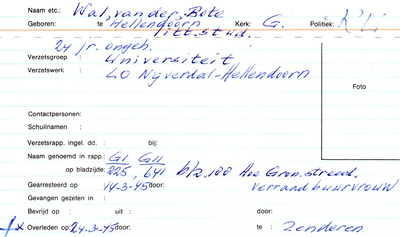 Naam etc.: Wal, van der, Bote
Geboren: te Hellendoorn Kerk: G. Politiek:
litt. stud.
24 jr. ongeh.
Verzetsgroep : Universiteit
Verzetswerk : LO Nijverdal-Hellendoorn
Foto
Contactpersonen:
Schuilnaam :
Verzetsrapp. ingel. dd. : bij:
Naam genoemd in rapp.: GI GII
op bladzijde: 225, 641 blz. 100 Hoe Gron. streed.
Gearresteerd op 14-3-45 door: verraad buurvrouw
Gevangen gezeten in :
Bevrijd op : uit : door:
x Overleden op: 24-3-45 door: te : Zenderen